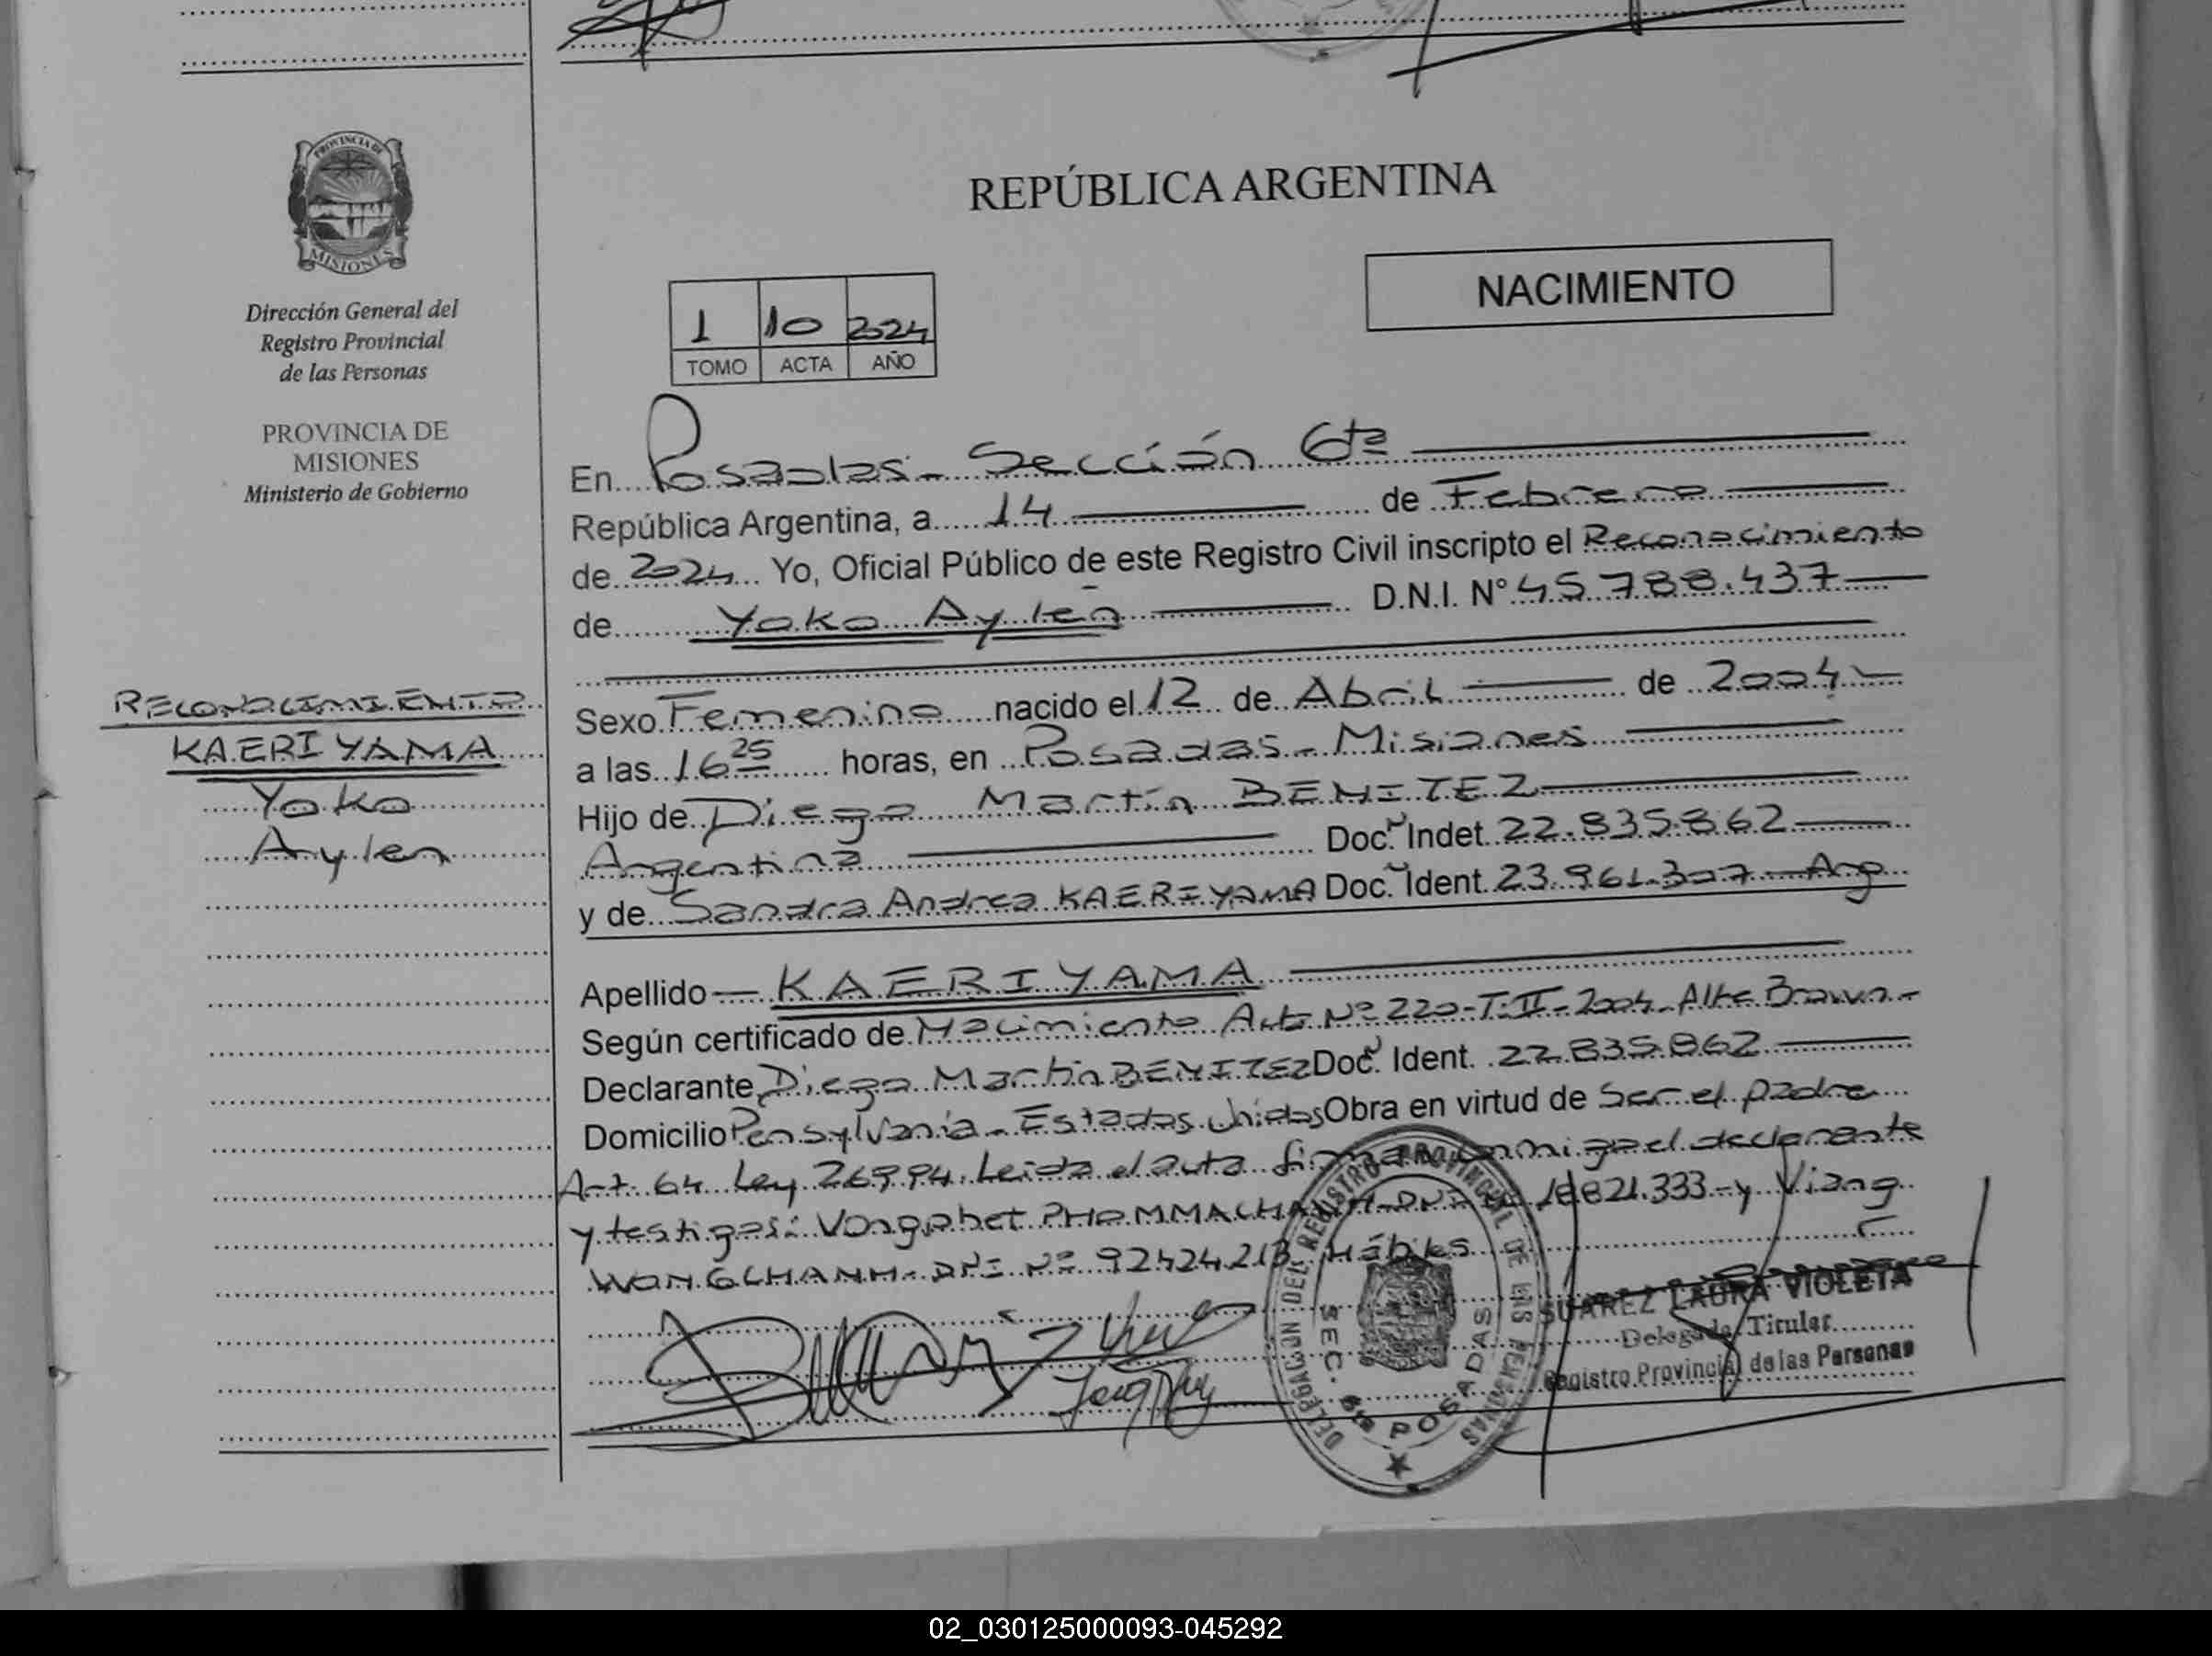 PROVINCIA DE
MISIONES
Dirección General del
Registro Provincial
de las Personas
PROVINCIA DE
MISIONES
Ministerio de Gobierno
RECONOCIMIENTO
KAERIYAMA
Yoko
Aylen
REPÚBLICA ARGENTINA
NACIMIENTO
1 10 2024
TOMO ACTA AÑO
En Posadas - Sección 6ta
República Argentina, a 14 de Febrero
de 2024 Yo, Oficial Público de este Registro Civil inscripto el Reconocimiento
de Yoko Aylen D.N.I. N° 45.788.437
Sexo Femenino nacido el 12 de Abril de 2004
a las 16 25 horas, en Posadas - Misiones
Hijo de Diego Martín BENITEZ
Argentina Doc. Indet. 22.835.862
y de Sandra Andrea KAERIYAMA Doc. Ident. 23.961.307 - Arg
Apellido - KAERIYAMA
Según certificado de Nacimiento Acta Nº 220-T-II-2004- Alte Brown-
Declarante Diego Martín BENITEZ Doc. Ident. 22.835.862
Domicilio Pensylvania - Estados Unidos Obra en virtud de ser el padre
Art 64 Ley 26994. Leida el acta firman conmigo el declarante
y testigos: Vongphet PHOMMACHANH-DNI Nº 18821.333 - y Viang
WONGCHANH - DNI Nº 92424213 Hábiles
DELEGACIÓN DEL REGISTRO PROVINCIAL DE LAS PERSONAS
SEC. 6ta POSADAS
SUAREZ LAURA VIOLETA
Delegada Titular
Registro Provincial de las Personas
02_030125000093-045292